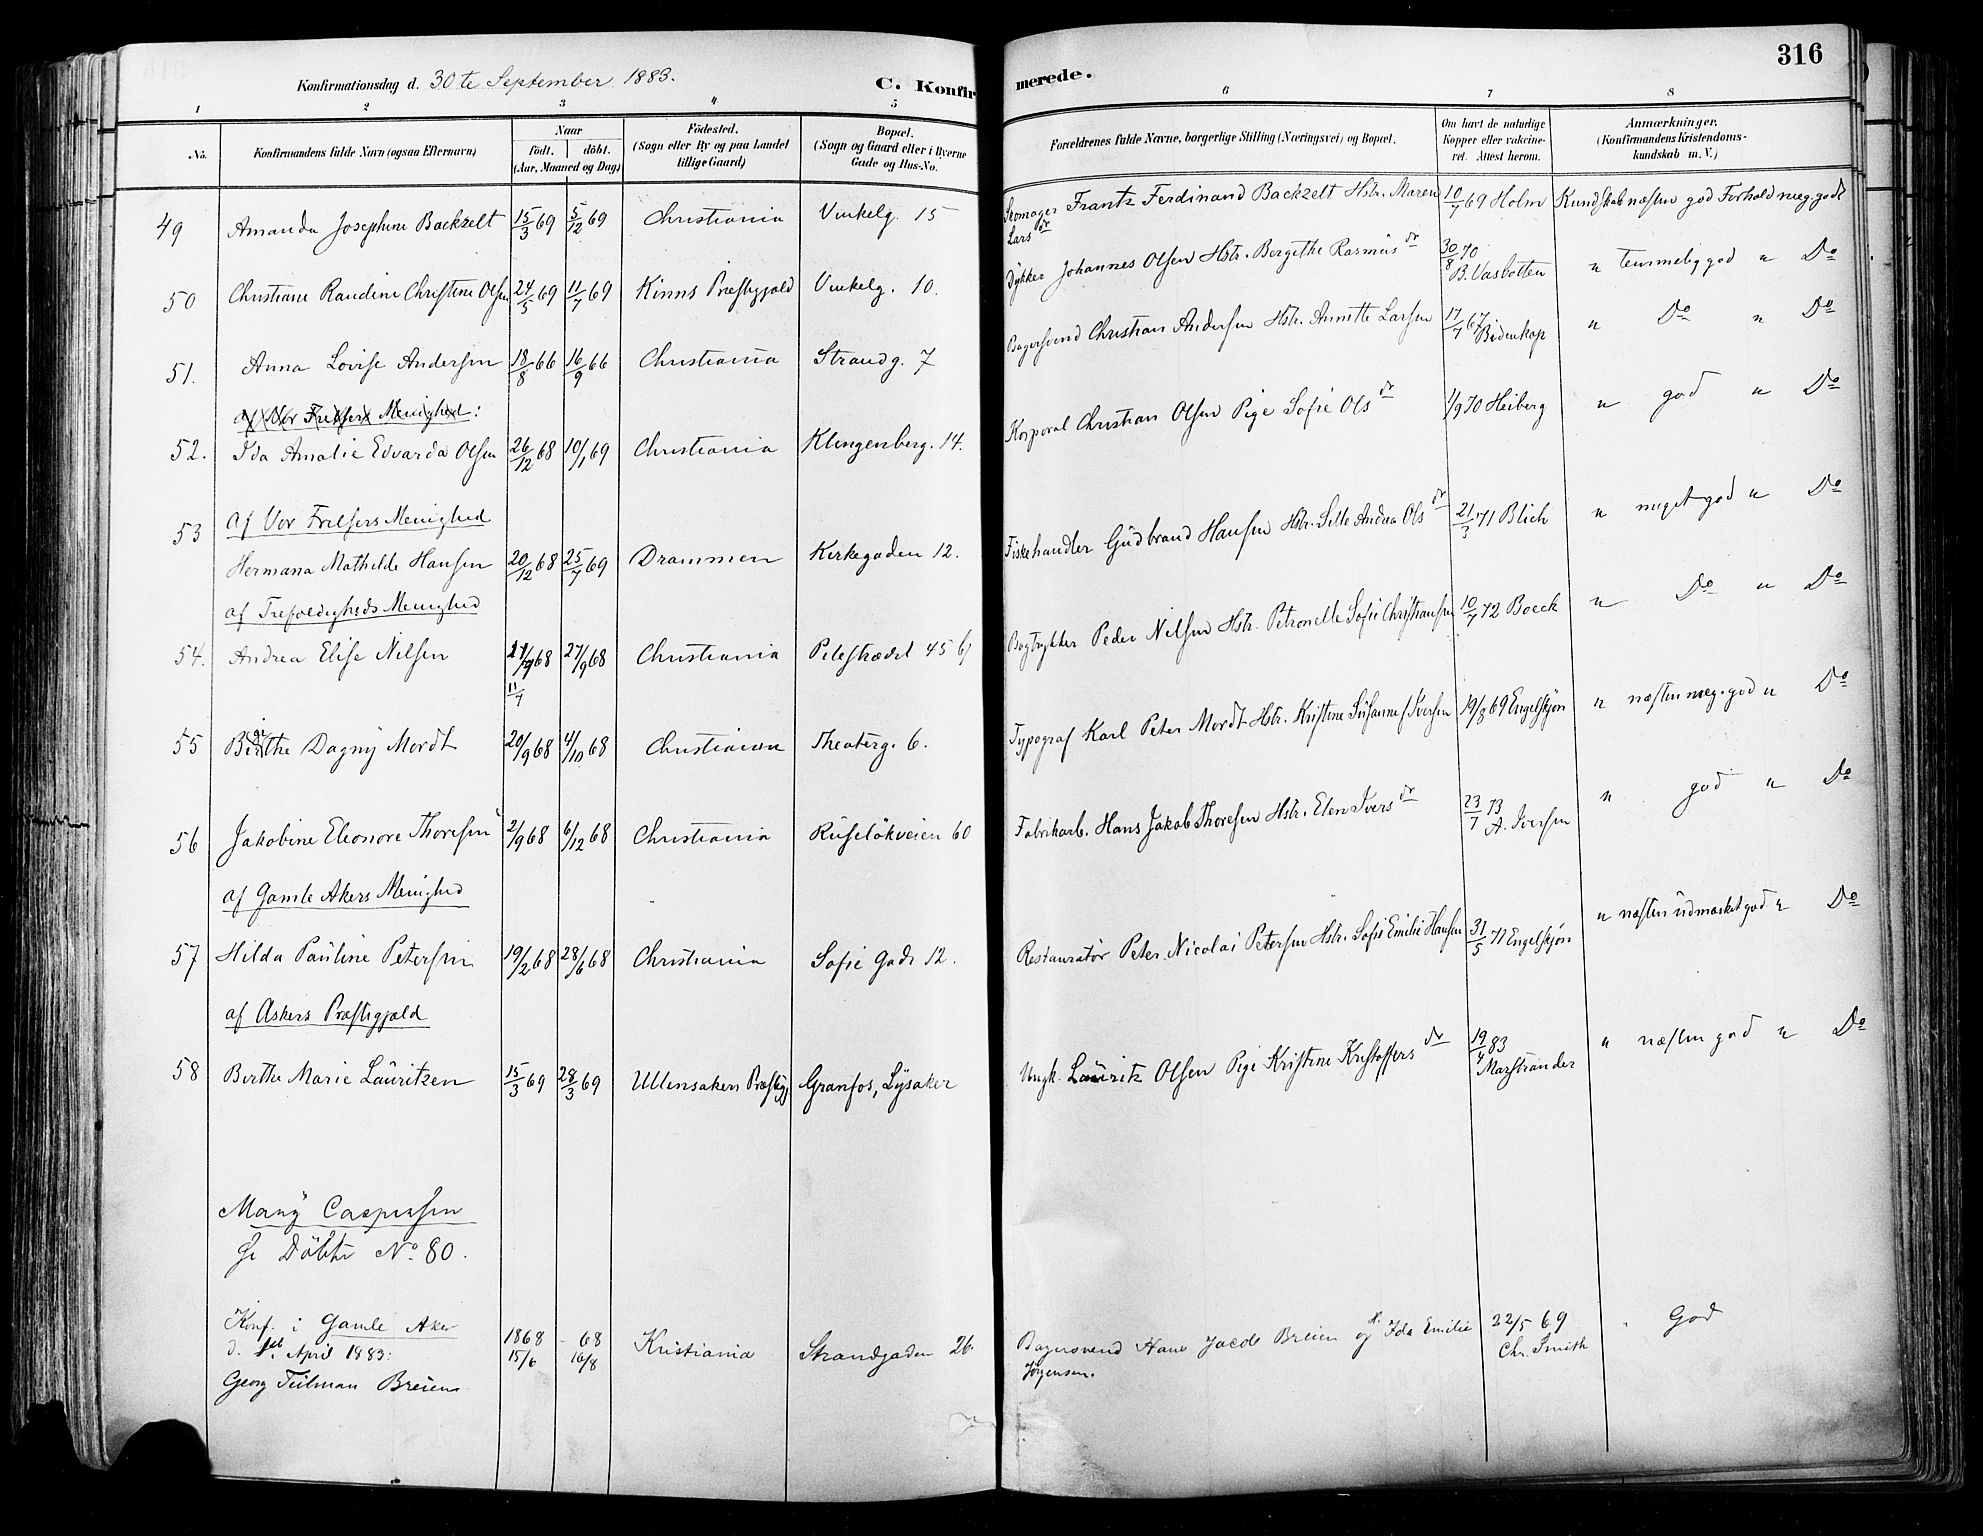 316
Konfirmationsdag d. 30te September 1883.
C. Konfirmerede.
1 2 3 4 5 6 7 8
No.
Konfirmandens fulde Navn (ogsaa Efternavn)
Naar
födt. döbt.
(Aar, Maaned og Dag)
Födested.
(Sogn eller By og paa Landet
tillige Gaard)
Bopæl.
(Sogn og Gaard eller i Byerne
Gade og Hus-No.
Forældrenes fulde Navne, borgerlige Stilling (Næringsvei) og Bopæl.
Om havt de naturlige
Kopper eller vakcine-
ret. Attest herom.
Anmærkninger.
(Konfirmandens Kristendoms-
kundskab m. V.)
49 Amanda Josephine Backzelt 15/3 69 5/12 69 Christiania Vinkelg. 15 Skomager Frantz Ferdinand Backzelt Hstr. Maren Lars dr 10/7 69 Holm Kundskab næsten god Forhold meg. godt
50 Christiane Randine Christine Olsen 24/5 69 11/7 69 Kinns Præstegjæld Vinkelg. 10. Dykker Johannes Olsen Hstr. Bergithe Rasmus dr 30/8 70 B. Vasbotten " temmelig god " Do
51. Anna Lovise Andersen 18/8 66 16/9 66 Christiania Strandg. 7 Bagersvend Christian Andersen Hstr. Annette Larsen 17/7 67 Bidenkap " Do " Do
af Vor Frelsers Menighed:
52. Ida Amalie Edvarda Olsen 26/12 68 10/1 69 Christiania Klingenberg. 14. Korporal Christian Olsen Pige Sofie Ols dr 1/9 70 Heiberg " god " Do
af Vor Frelsers Menighed
53 Hermana Mathilde Hansen 20/12 68 25/7 69 Drammen Kirkegaden 12. Fiskehandler Gudbrand Hansen Hstr. Sille Andrea Ols dr 21/3 71 Blich " meget god " Do
af Trefoldigheds Menighed
54. Andrea Elise Nilsen 11/7 68 27/9 68 Christiania Pilestrædet 45 b/ Bogtrykker Peder Nilsen Hstr. Petronelle Sofie Christiansen 10/7 72 Boeck " Do " Do
11/7
55 Birthe Dagny Mordt 20/9 68 4/10 68 Christiania Theaterg. 6. Typograf Karl Peter Mordt Hstr. Kristine Susanne f Iversen 19/8 69 Engelskjøn " næsten meg. god " Do
56 Jakobine Eleonore Thoresen 2/9 68 6/12 68 Christiania Ruseløkveien 60 Fabrikarb. Hans Jakob Thoresen Hstr. Elen Ivers dr 23/7 73 A. Iversen " god " Do
af Gamle Akers Menighed
57 Hilda Pauline Petersen 19/2 68 28/6 68 Christiania Sofie Gade 12. Restauratør Peter Nicolai Petersen Hstr. Sofie Emilie Hansen 31/5 71 Engelskjøn " næsten udmærket god " Do
af Askers Præstegjæld
58 Berthe Marie Lauritzen 15/3 69 28/3 69 Ullensakers Præstegj Granfos, Lysaker Ungk. Lauritz Olsen Pige Kristine Kristoffers dr 19/4 83 Marstrander " næsten god " Do
Many Caspersen
se Döbte No. 80.
Konf. i Gamle Aker
d. 1ste April 1883:
Georg Teilman Breien 1868 15/6 68 16/8 Kristiania Strandgaden 26. Bagersvend Hans Jacob Breien og Ida Emilie Jørgensen. 22/5 69 Chr. Smith " God